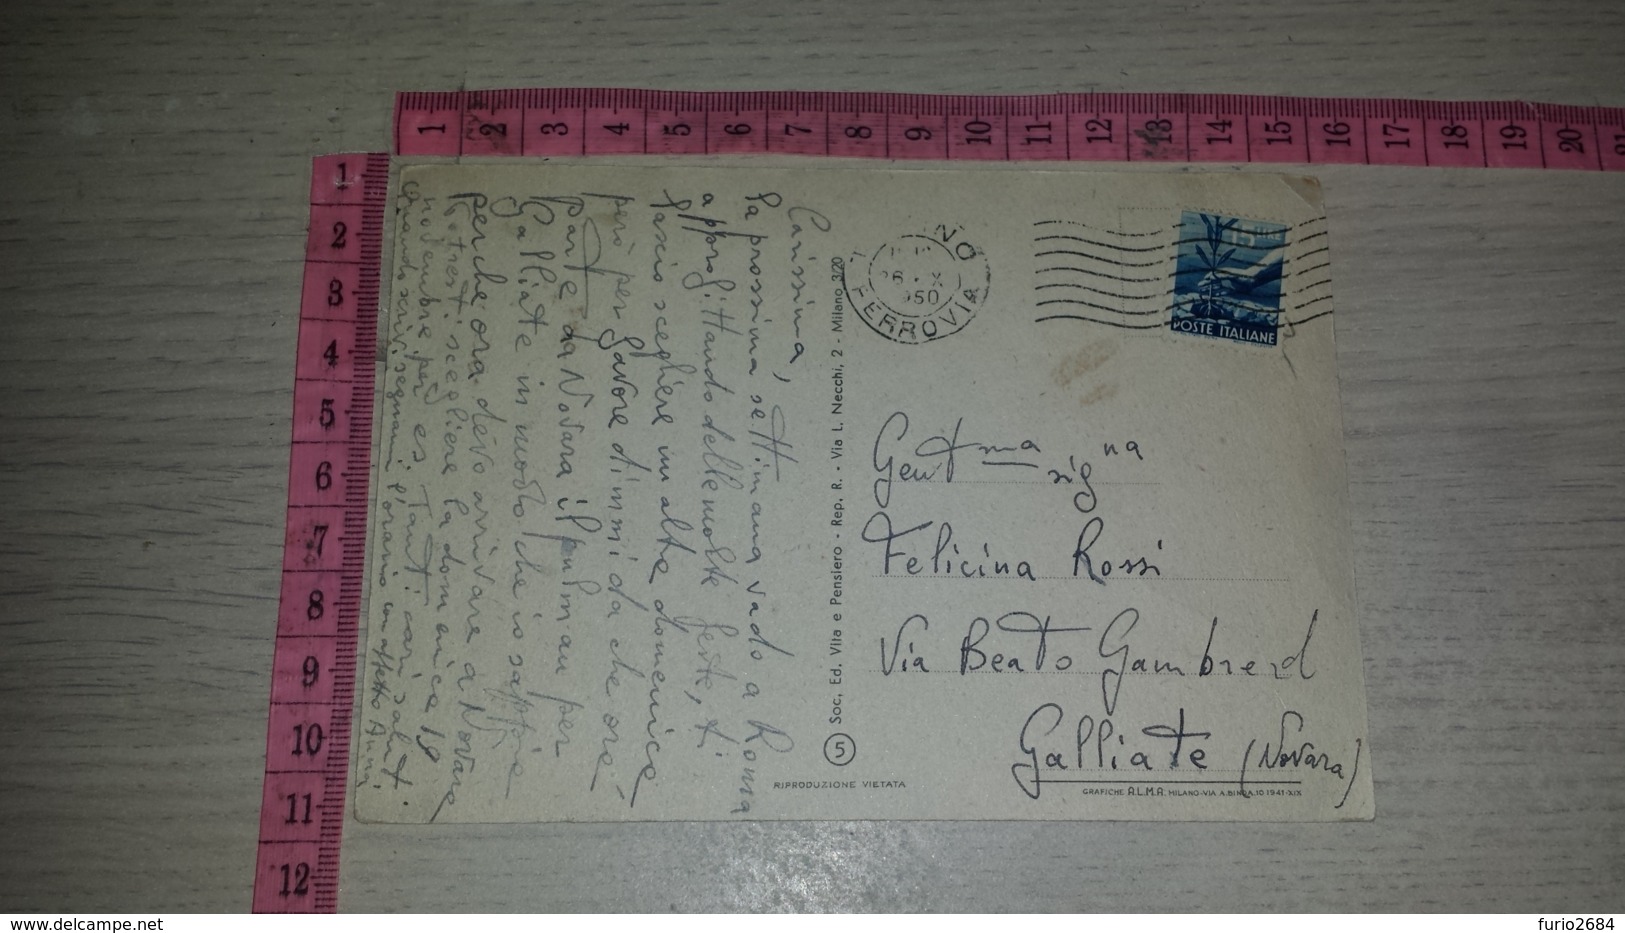 1 2 3 4 5 6 7 8 9 10 11 12 13 14 15 16 17 18 19 20 21
1
2
3
4
5
6
7
8
9
10
11
12
Carissima,
la prossima settimana vado a Roma
approfittando delle molte feste, ti
lascio scegliere un altra domenica
però per favore dimmi da che ora
parte da Novara il pulman per
Galliate in modo che io sappia
perche ora devo arrivare a Novara
Potresti scegliere la domenica 19
novembre per es. Tanti cari saluti.
Quando scrivi segnami l'orario con affetto Anna
Soc. Ed. Vita e Pensiero - Rep. R. - Via L. Necchi, 2 - Milano 3/20
5
RIPRODUZIONE VIETATA
NO
26 · X
1950
FERROVIA
15 LIRE
POSTE ITALIANE
Gent ma sig na
Felicina Rossi
Via Beato
Galliate (Novara)
GRAFICHE A.L.M.A. MILANO-VIA A. BINDA, 10 1941-XIX
delcampe.net
furio2684